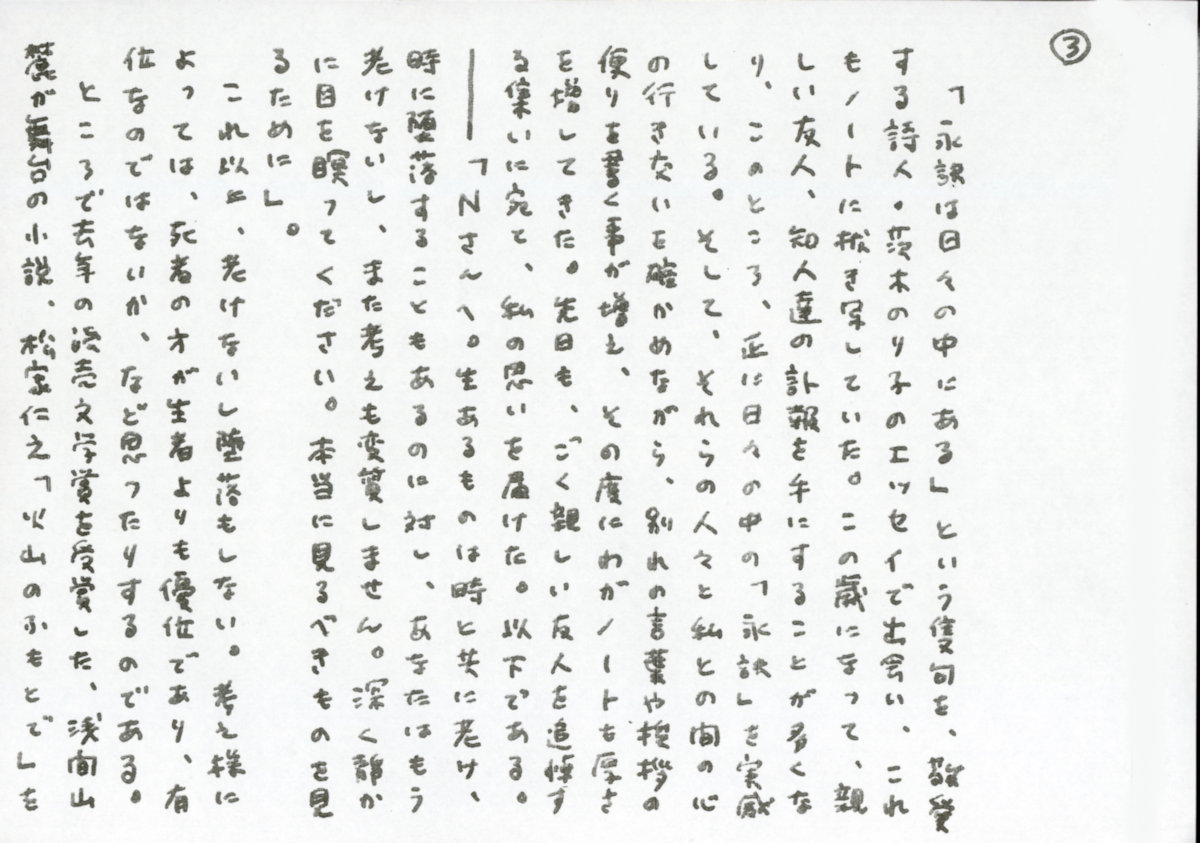 ③
「永訣は日々の中にある」という隻句を、敬愛
する詩人・茨木のり子のエッセイで出会い、これ
もノートに抜き写していた。この歳になって、親
しい友人、知人達の訃報を手にすることが多くな
り、このところ、正に日々の中の「永訣」を実感
している。そして、それらの人々と私との間の心
の行き交いを確かめながら、別れの言葉や挨拶の
便りを書く事が増え、その度にわがノートを厚さ
を増してきた。先日も、ごく親しい友人を追悼す
る集いに宛て、私の思いを届けた。以下である。
――「Nさんへ。生あるものは時と共に老け、
時に堕落することもあるのに対し、あなたはもう
老けないし、また考えも変質しません。深く静か
に目を瞑ってください。本当に見るべきものを見
るために」。
これ以上、老けないし堕落もしない。考え様に
よっては、死者の方が生者よりも優位であり、有
位なのではないか、など思ったりするのである。
ところで去年の読売文学賞を受賞した、浅間山
麓が舞台の小説、松家仁之「火山のふもとで」を